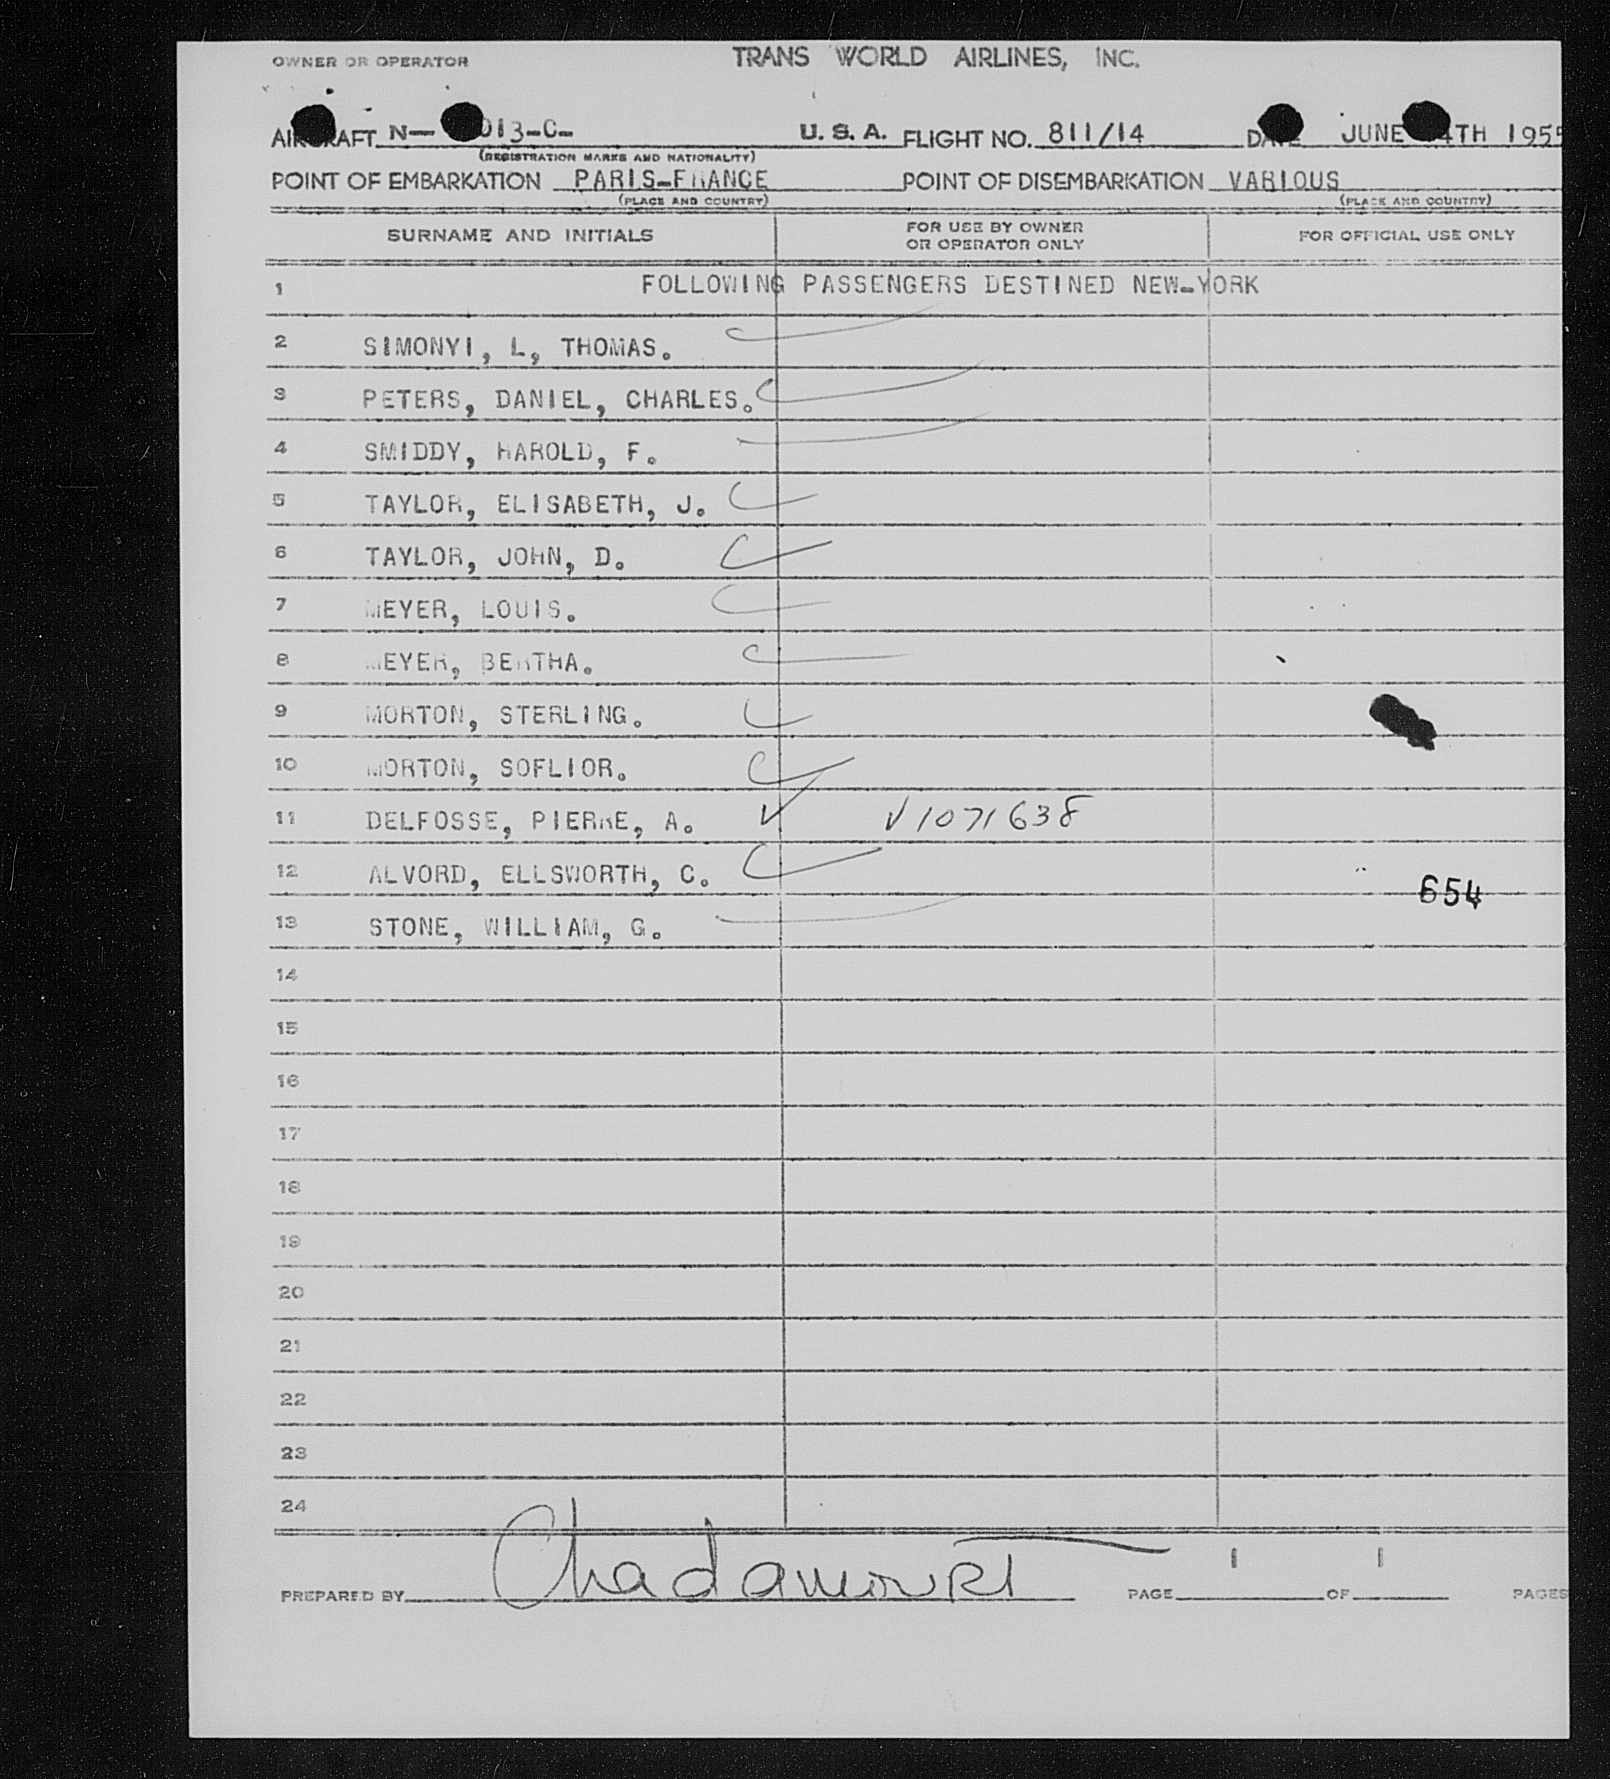 OWNER OR OPERATOR TRANS WORLD AIRLINES, INC.
N- 013-C- U. S. A. FLIGHT NO. 811/14 JUNE 4TH 1955
(REGISTRATION MARKS AND NATIONALITY)
POINT OF EMBARKATION PARIS-FRANCE POINT OF DISEMBARKATION VARIOUS
(PLACE AND COUNTRY) (PLACE AND COUNTRY)
SURNAME AND INITIALS FOR USE BY OWNER OR OPERATOR ONLY FOR OFFICIAL USE ONLY
1 FOLLOWING PASSENGERS DESTINED NEW-YORK
2 SIMONYI, L, THOMAS.
3 PETERS, DANIEL, CHARLES.
4 SMIDDY, HAROLD, F.
5 TAYLOR, ELISABETH, J.
6 TAYLOR, JOHN, D.
7 MEYER, LOUIS.
8 MEYER, BERTHA.
9 MORTON, STERLING.
10 MORTON, SOFLIOR.
11 DELFOSSE, PIERRE, A. V1071638
12 ALVORD, ELLSWORTH, C. 654
13 STONE, WILLIAM, G.
14
15
16
17
18
19
20
21
22
23
24
PREPARED BY PAGE 1 OF 1 PAGES